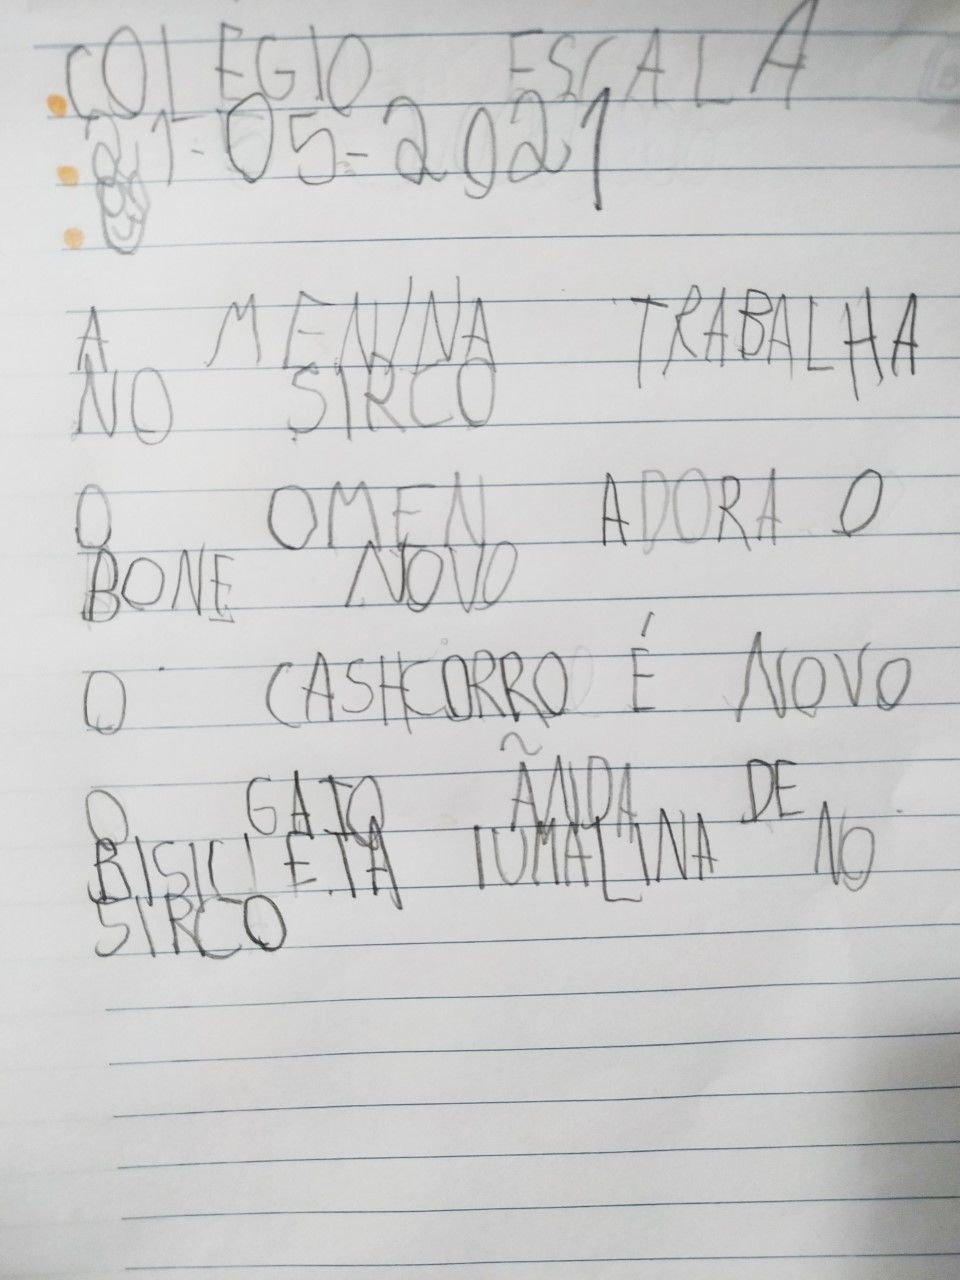 COLEGIO ESCALA
21-05-2021
A MENINA TRABALHA
NO SIRCO
O OMEN ADORA O
BONE NOVO
O CASHCORRO É NOVO
O GATO ÃNDA DE
BISICLETA IUMALINA NO
SIRCO